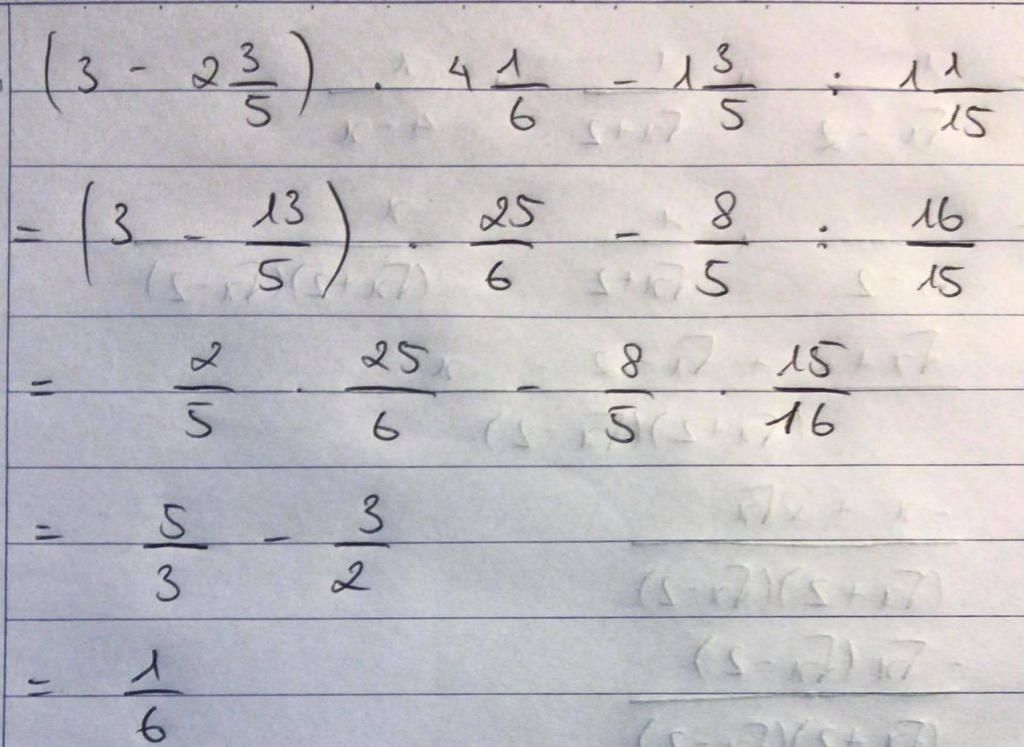 (3 - 2 3/5) · 4 1/6 - 1 3/5 : 1 1/15
= (3 - 13/5) · 25/6 - 8/5 : 16/15
= 2/5 · 25/6 - 8/5 · 15/16
= 5/3 - 3/2
= 1/6